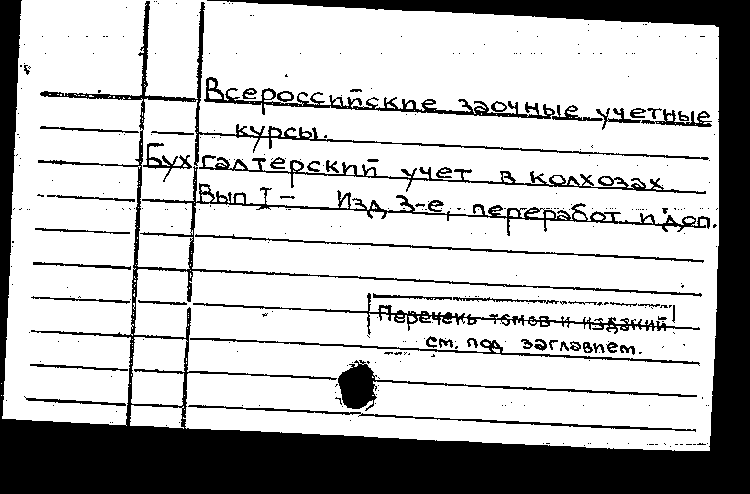 Всероссийские заочные учетные
курсы.
Бухгалтерский учет в колхозах
Вып I – Изд, 3-е, переработ. и доп.
Перечень томов и изданий
см. под заглавием.